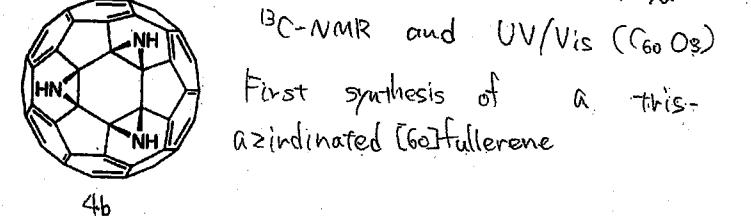 NH
HN
NH
4b
¹³C-NMR and UV/Vis (C₆₀O₃)
First synthesis of a tris-
azirdinated [60]fullerene